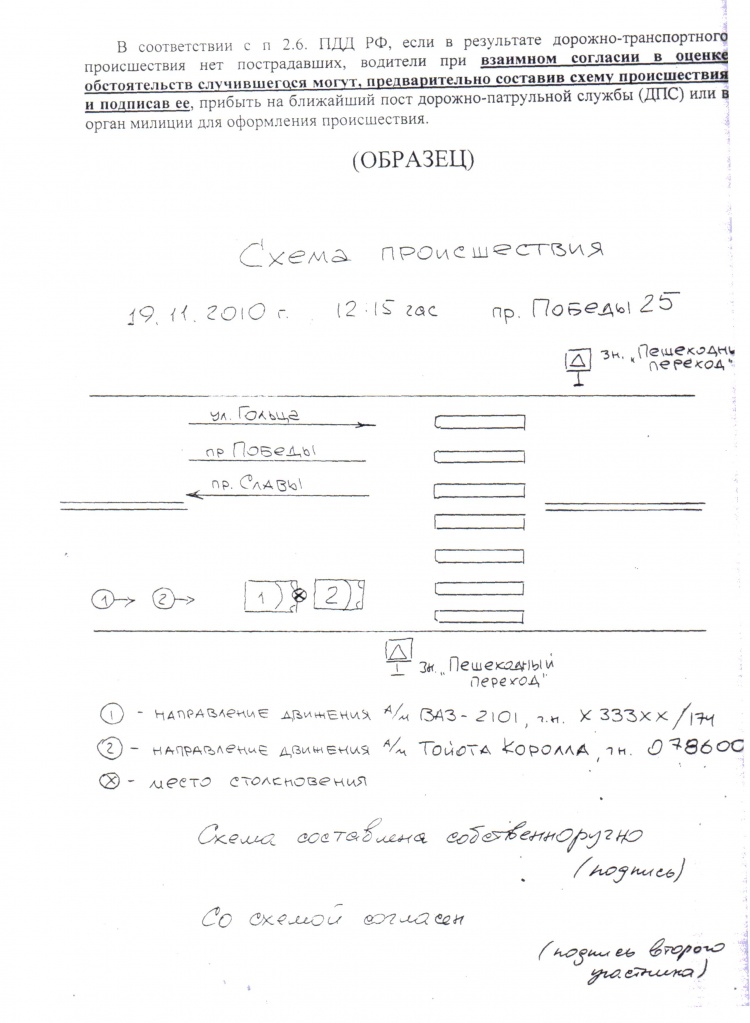 В соответствии с п 2.6. ПДД РФ, если в результате дорожно-транспортного
происшествия нет пострадавших, водители при взаимном согласии в оценке
обстоятельств случившегося могут, предварительно составив схему происшествия
и подписав ее, прибыть на ближайший пост дорожно-патрульной службы (ДПС) или в
орган милиции для оформления происшествия.
(ОБРАЗЕЦ)
Схема происшествия
19.11.2010 г. 12:15 час пр. Победы 25
Зн. „Пешеходн
переход"
ул. Гольца
пр Победы
пр. Славы
1 2 1 2
Зн. „Пешеходный
переход"
1 - направление движения а/м ВАЗ-2101, г.н. Х333ХХ/174
2 - направление движения а/м Тойота Королла, гн. О786ОС
- место столкновения
Схема составлена собственноручно
(подпись)
Со схемой согласен
(подпись второго
участника)